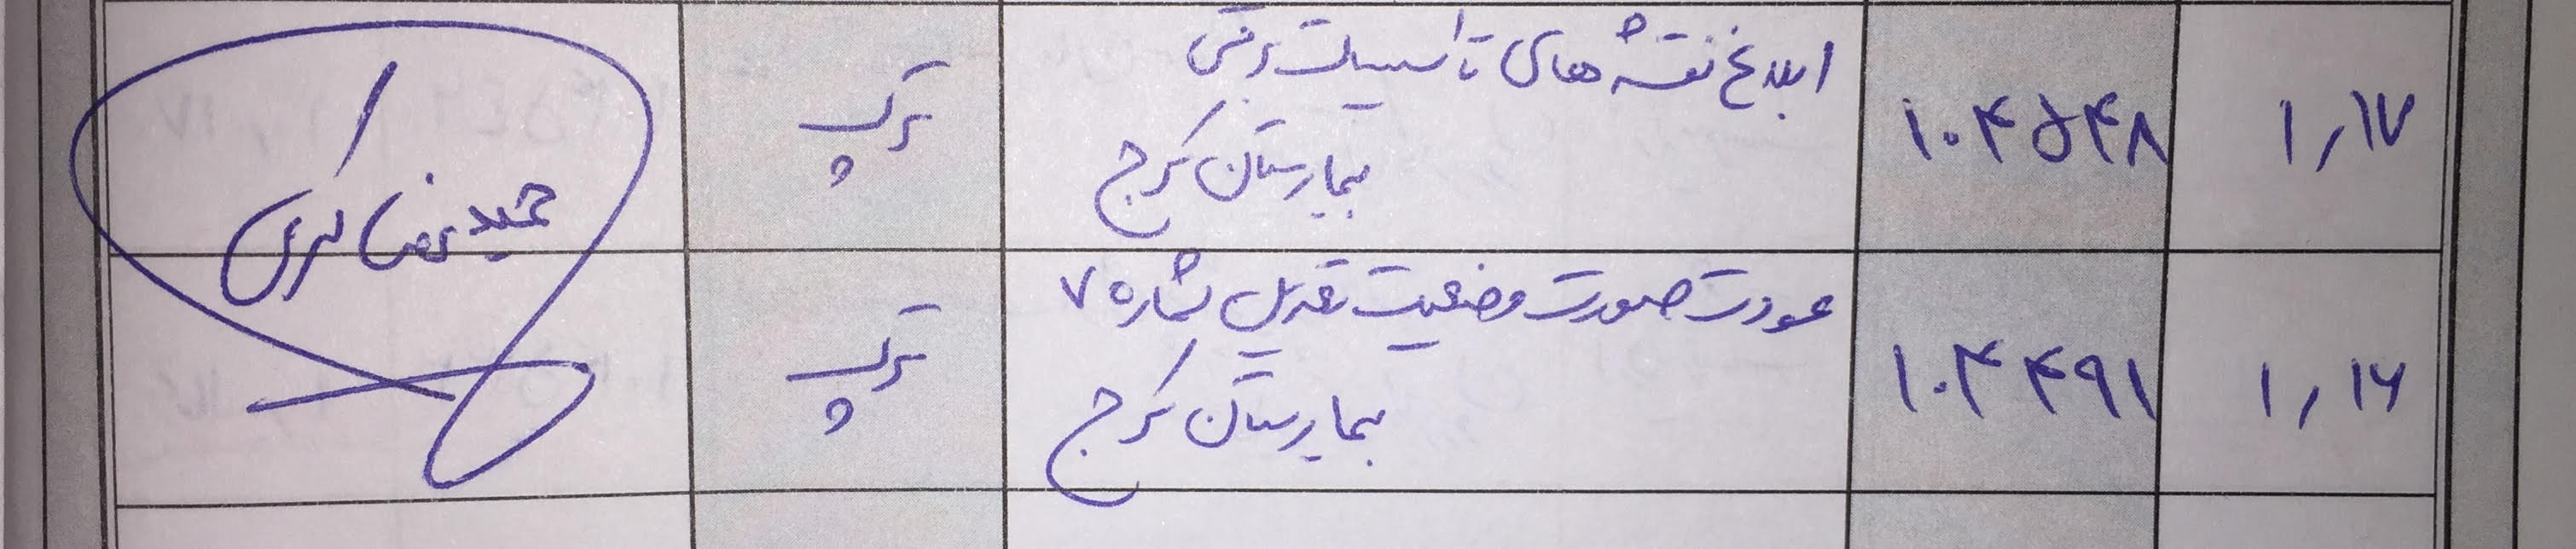 ۱,۱۷
۱۰۴۵۴۸
ابلاغ نقشه های تاسیسات برقی
بیمارستان کرج
پرک
حمیدرضا اکبری
۱,۱۶
۱۰۴۴۹۱
عودت صورت وضعیت تعدیل شماره ۷
بیمارستان کرج
پرک